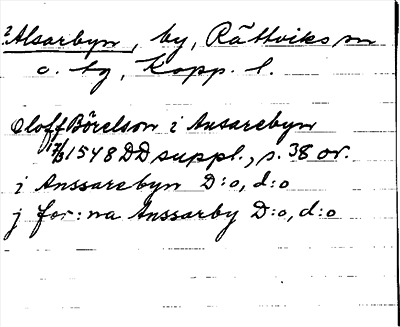 2 Alsarbyn, by, Rättviks sn
o. tg, Kopp. l.
Oloff Börelson i Ansarebyn
17/3 1548 DD suppl., s. 38 or.
i Anssarebyn D:o, d:o
j for:na Anssarby D:o, d:o